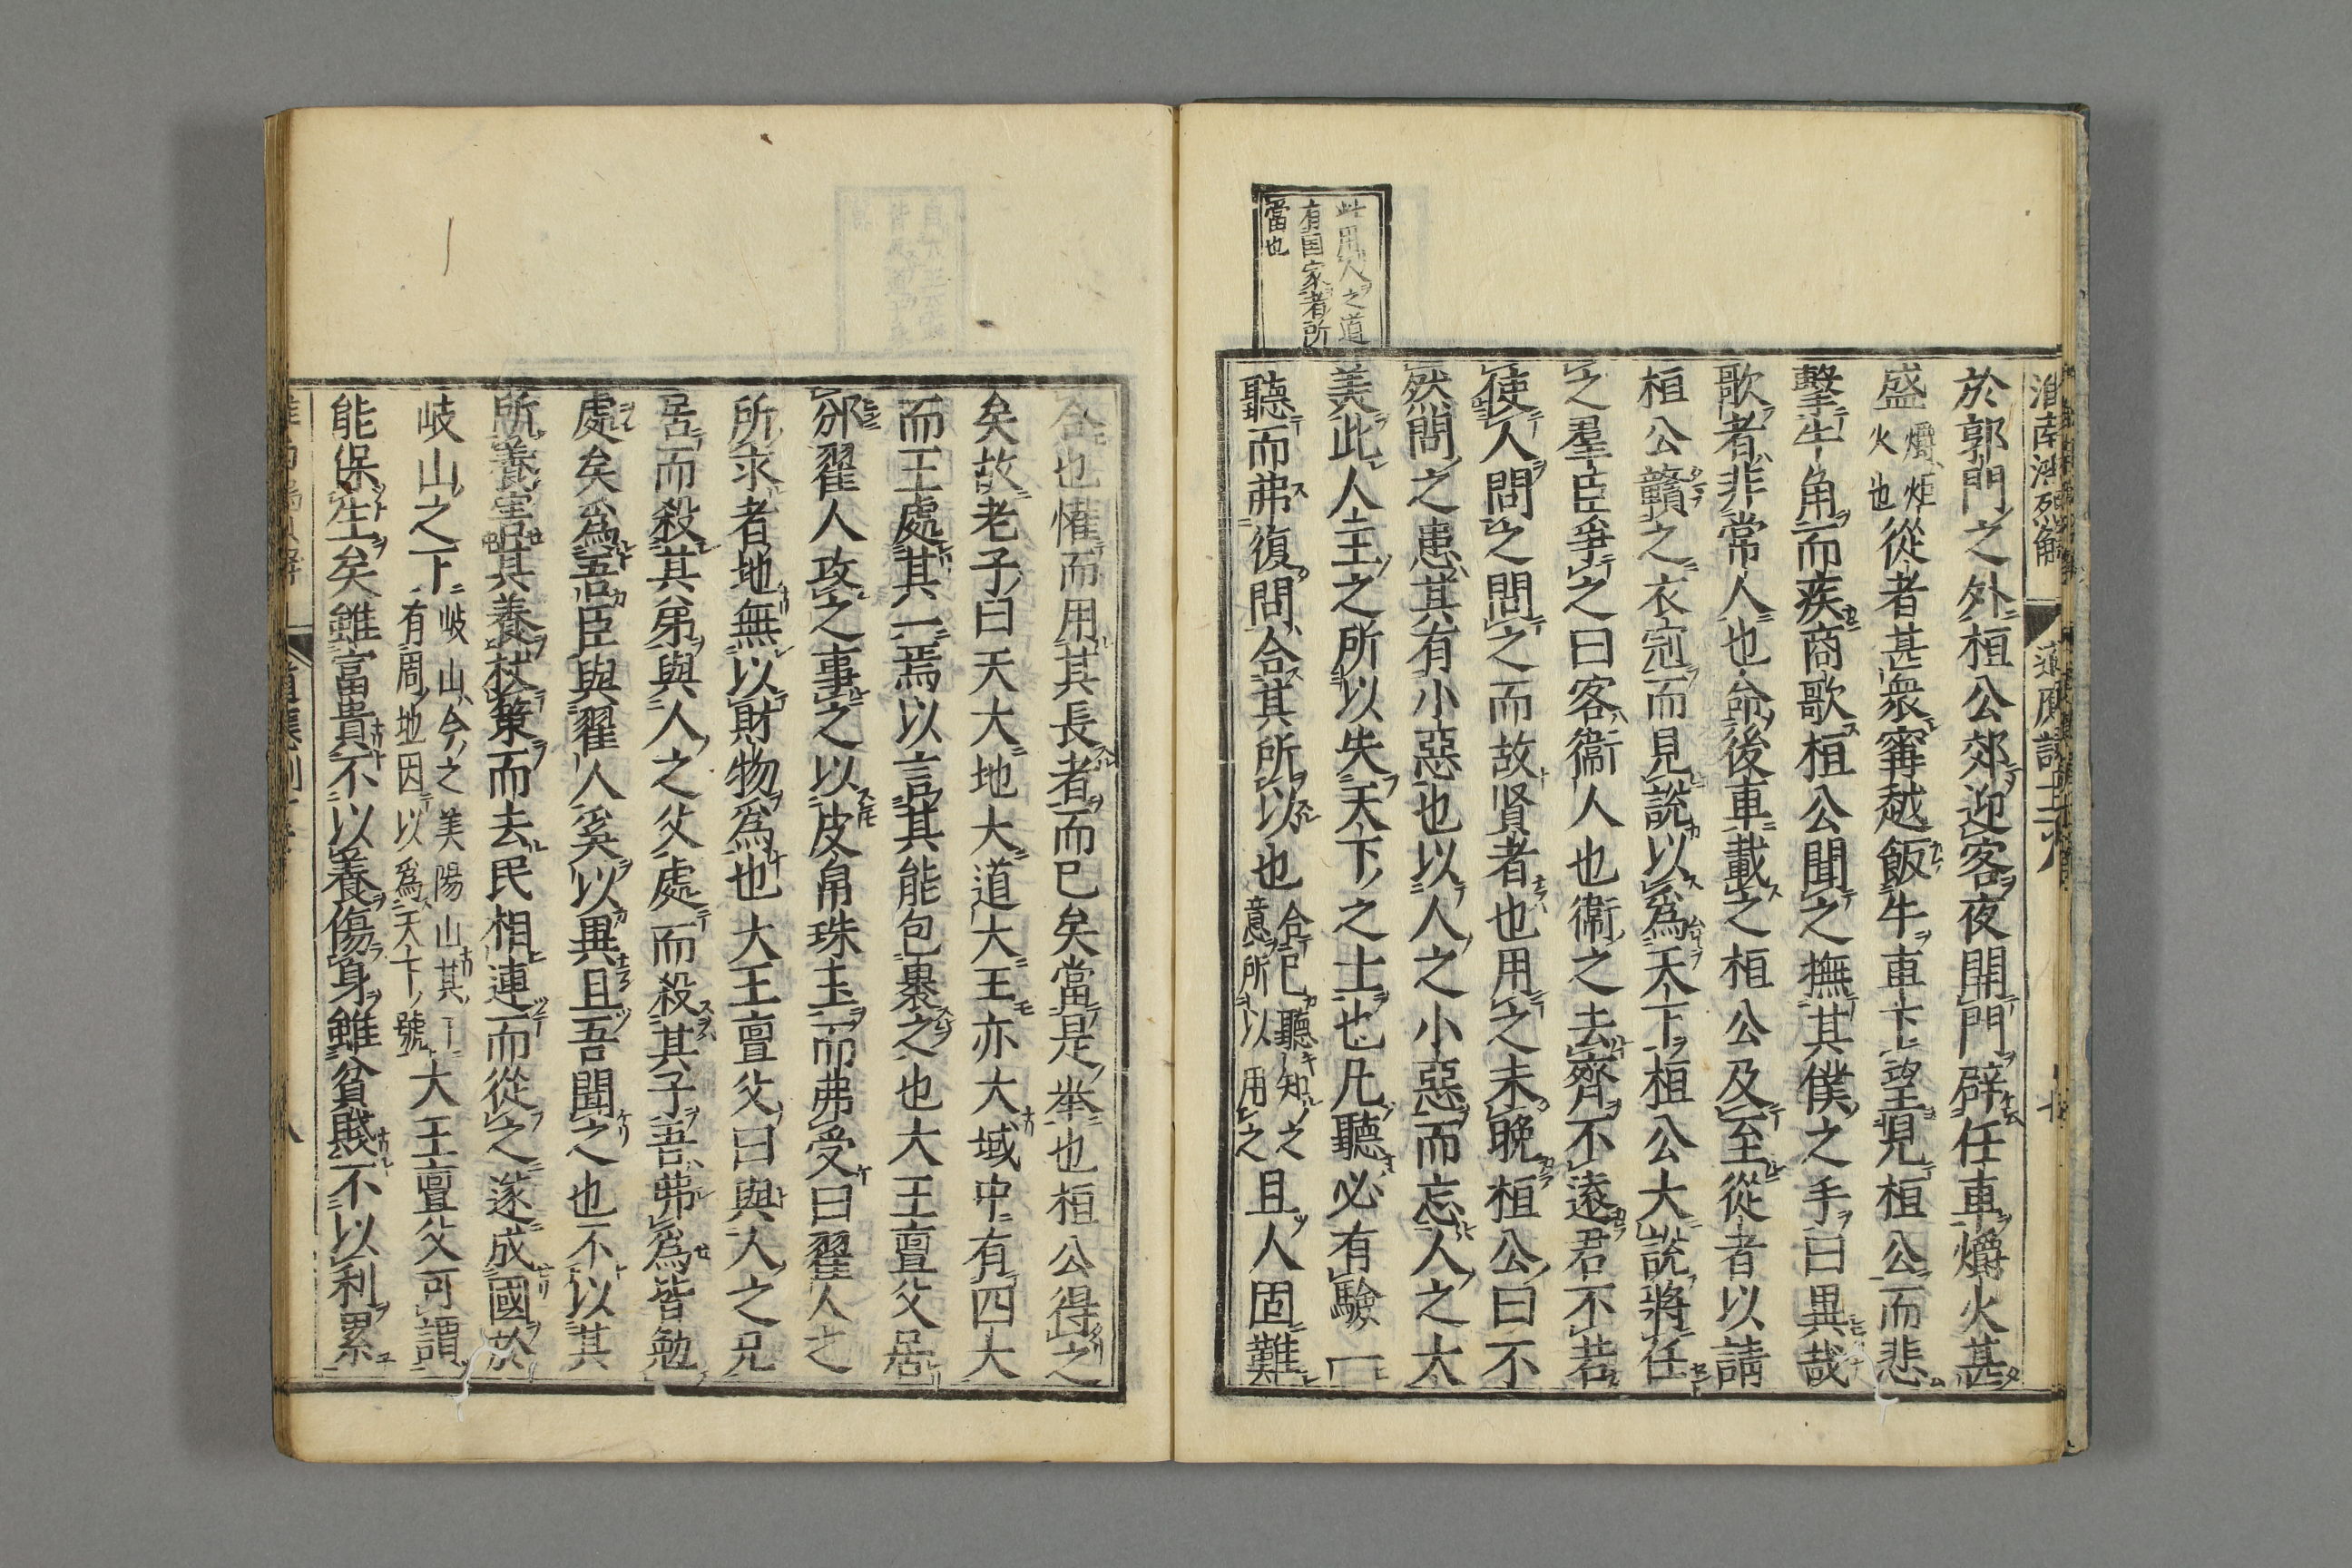 淮南鴻烈解
道應訓十二卷
此用人之道
有国家者所
當也
於郭門之外桓公郊迎客夜開門辟任車爝火甚
盛爝炬火也從者甚衆甯越飯牛車下望見桓公而悲
擊牛角而疾商歌桓公聞之撫其僕之手曰異哉
歌者非常人也命後車載之桓公及至從者以請
桓公贛之衣冠而見說以爲天下桓公大說將任
之羣臣爭之曰客衞人也衞之去齊不遠君不若
使人問之問之而故賢者也用之未晚桓公曰不
然問之患其有小惡也以人之小惡而忘人之大
美此人主之所以失天下之士也凡聽必有驗一
聽而弗復問合其所以也合己聽知之意所以用之且人固難
合也惟而用其長者而已矣當是举也桓公得之
矣故老子曰天大地大道大王亦大域中有四大
而王處其一焉以言其能包裹之也大王亶父居
邠翟人攻之事之以皮帛珠玉而弗受曰翟人之
所求者地無以財物爲也大王亶父曰與人之兄
居而殺其弟與人之父處而殺其子吾弗爲皆勉
處矣爲吾臣與翟人奚以異且吾聞之也不以其
所養害其養杖策而去民相連而從之遂成國於
岐山之下岐山今之美陽山其下有周地因以爲天下號大王亶父可謂
能保生矣雖富貴不以養傷身雖貧賤不以利累